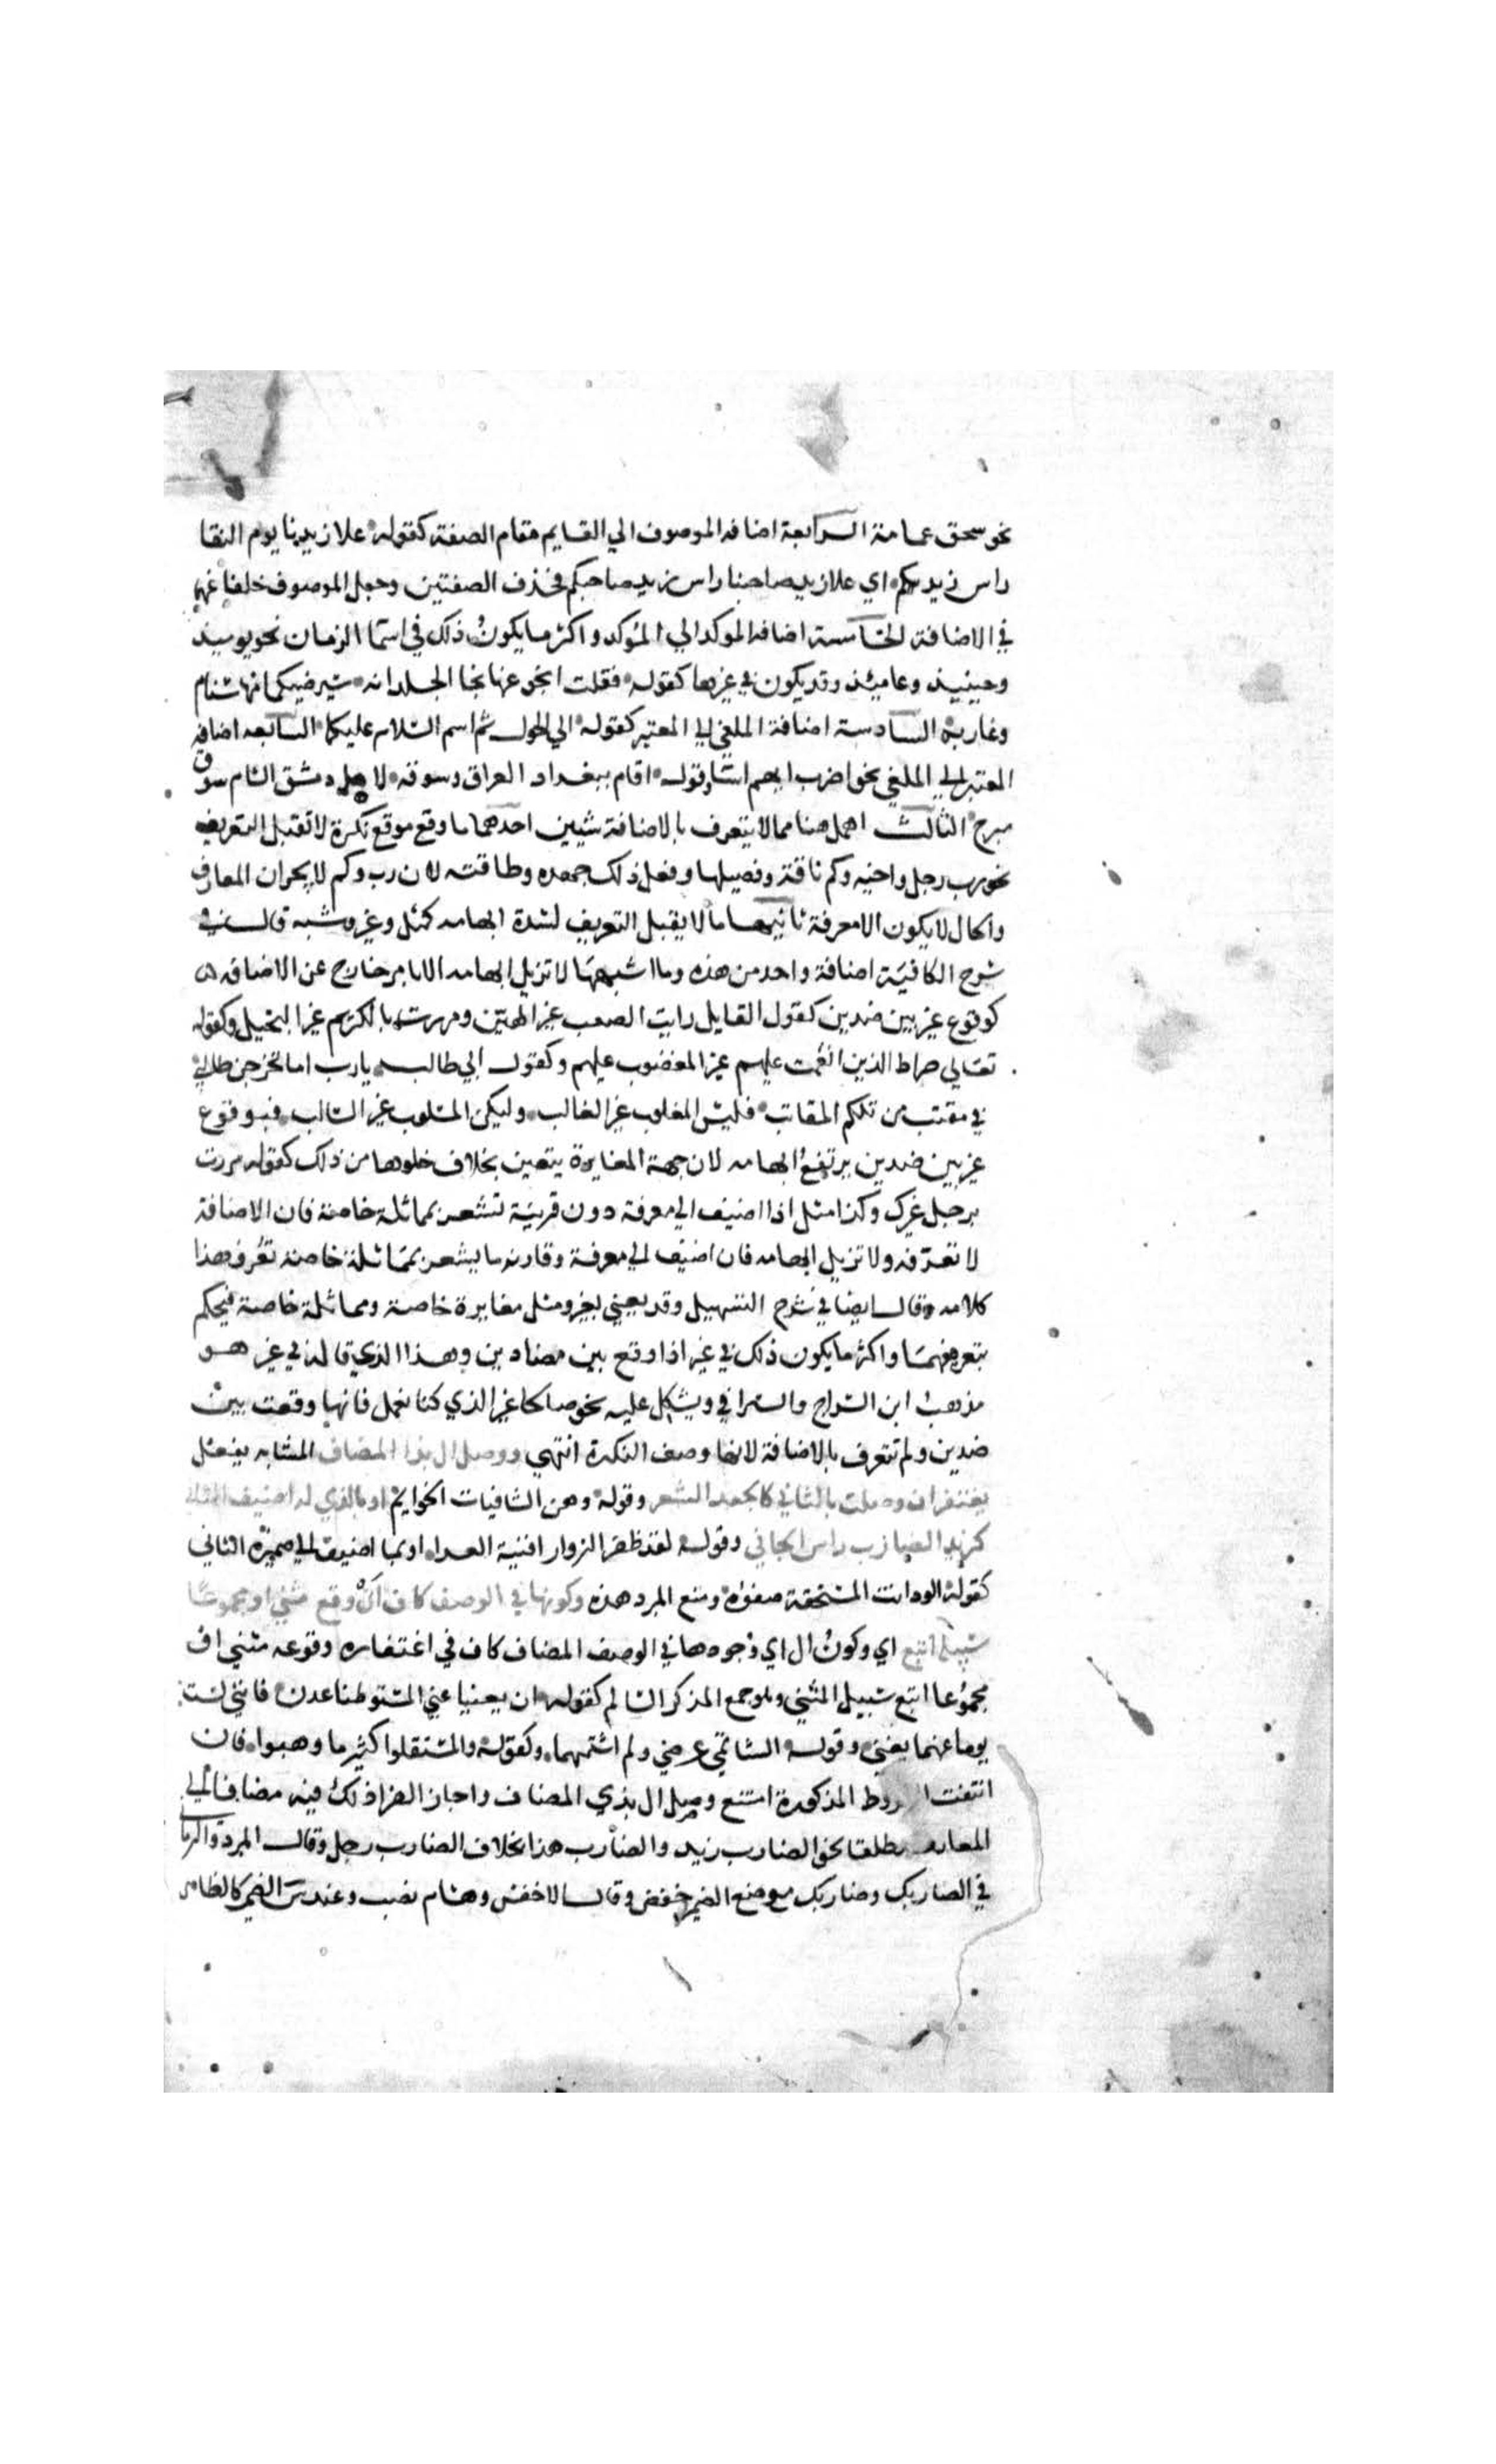 نحو سحق عمامة الرابعة اضافه الموصوف الي القايم مقام الصفة كقوله علا زيدنا يوم النقا
راس زيدكم اي علا زيد صاحبنا راس زيد صاحبكم فحذف الصفتين وجعل الموصوف خلفا عنهما
في الاضافة الخامسة اضافه الموكد الي المؤكد واكثر ما يكون ذلك في اسما الزمان نحو يوميذ
وحينيذ وعاميئذ وقد يكون في غيرها كقوله فقلت انجو عنها نجا الجلد انه سيرضيكما منها سنام
وغاربه السادسة اضافة الملغي الي المعتبر كقوله الي الحول ثم اسم السلام عليكما السابعه اضافه
المعتبر الي الملغي نحو اضرب ايهم اسا وقوله اقام ببغداد العراق وسوقه لاهل دمشق الشام سوق
مبرح الثالث اهمل هنا مما لا يتعرف بالاضافة شيين احدهما ما وقع موقع نكرة لا تقبل التعريف
نحو رب رجل واخيه وكم ناقة وفصيلها وفعل ذلك جهده وطاقته لان رب وكم لا يجران المعارف
والحال لا يكون الا معرفة ثانيهما ما لا يقبل التعريف لشدة ابهامه كمثل وغير وشبه قال في
شرح الكافية اضافة واحد من هذه وما اشبهها لا تزيل ابهامه الا بامر خارج عن الاضافه
كوقوع غير بين ضدين كقول القايل رايت الصعب غير الهين ومررت بالكريم غير البخيل وكقوله
تعالي صراط الذين انعمت عليهم غير المغضوب عليهم وكقول ابي طالب يارب اما تخرجن طالبي
في مقنب من تلكم المقانب فليس المغلوب غير الغالب وليكن المسلوب غير السالب فبوقوع
غير بين ضدين يرتفع ابهامه لان جهة المغايرة يتعين بخلاف خلوها من ذلك كقوله مررت
برجل غيرك وكذا مثل اذا اضيف الي معرفة دون قرينة تشعر بمماثلة خاصة فان الاضافة
لا تعرفه ولا تزيل ابهامه فان اضيف الي معرفة وقارنه ما يشعر بمماثلة خاصة تعرف هذا
كلامه وقال ايضا في شرح التسهيل وقد يعني بغير ومثل مغايرة خاصة ومماثلة خاصة فيحكم
بتعريفهما واكثر ما يكون ذلك في غير اذا وقع بين مضادين وهذا الذي قاله في غير هو
مذهب ابن السراج والسيرافي ويشكل عليه نحو صالحا غير الذي كنا نعمل فانها وقعت بين
ضدين ولم تتعرف بالاضافة لانها وصف النكرة انتهي ووصل ال بذا المضاف المشابه يفعل
يغتفر ان وصلت بالثاني كالجعد الشعر وقوله وهن الشافيات الحوايم او بالذي له اضيف الثاني
كزيد الضارب راس الجاني وقوله لقد ظفر الزوار اقنية العدا او بما اضيف الي ضميره الثاني
كقوله الود انت المستحقة صفوه ومنع المبرد هذه وكونها في الوصف كاف ان وقع مثني او جموعا
سبيله اتبع اي وكون ال اي وجودها في الوصف المضاف كاف في اغتفاره وقوعه مثني او
مجموعا اتبع سبيل المثني وهو جمع المذكر السالم كقوله ان يعنيا عني المستوطنا عدن فانني لست
يوما عنهما بغني وقوله الشاتمي عرضي ولم اشتمهما وكقوله والمستقلوا كثير ما وهبوا فان
انتفت الشروط المذكورة امتنع وصل ال بذي المضاف واجاز الفرا ذلك فيه مضافا الي
المعارف مطلقا نحو الضارب زيد والضارب هذا بخلاف الضارب رجل وقال المبرد والرماني
في الضاربك وضاربك موضع الضمير خفض وقال الاخفش وهشام نصب وعند س الضمير كالظاهر